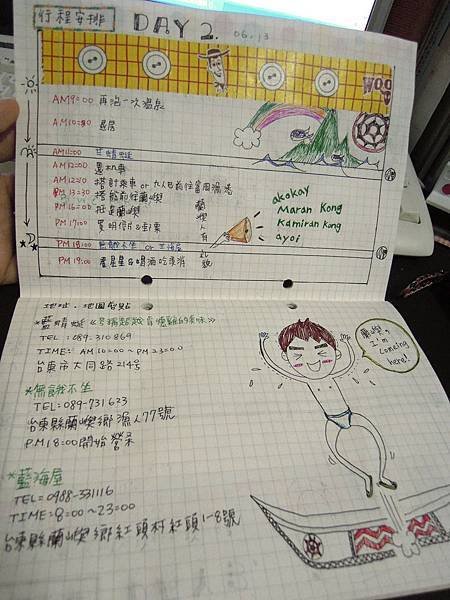 行程安排 DAY 2. 06.13
WOO
AM9:00 再泡一次溫泉
AM10:30 退房
AM11:00 藍蜻蜓
AM12:00 還機車
AM12:30 搭計乘車 or 九人巴前往富岡漁港
PM13:30 搭船前往蘭嶼
PM16:00 抵達蘭嶼
PM17:00
PM18:00 無餓不坐 or
PM19:00 看星星&喝酒吃東西
蘭嶼人有禮貌
akokay
Maran Kong
Kamiran Kong
ayoi
地址、地圖
*藍蜻蜓
TEL:089-310869
TIME: AM10:00~PM23:00
台東市大同路214號
*無餓不坐
TEL:089-731623
台東縣蘭嶼鄉漁人77號
PM18:00開始營業
*藍海屋
TEL=0988-331116
TIME=8:00~23:00
台東縣蘭嶼鄉紅頭村紅頭1-8號
蘭嶼,
I'm
comeing
here!